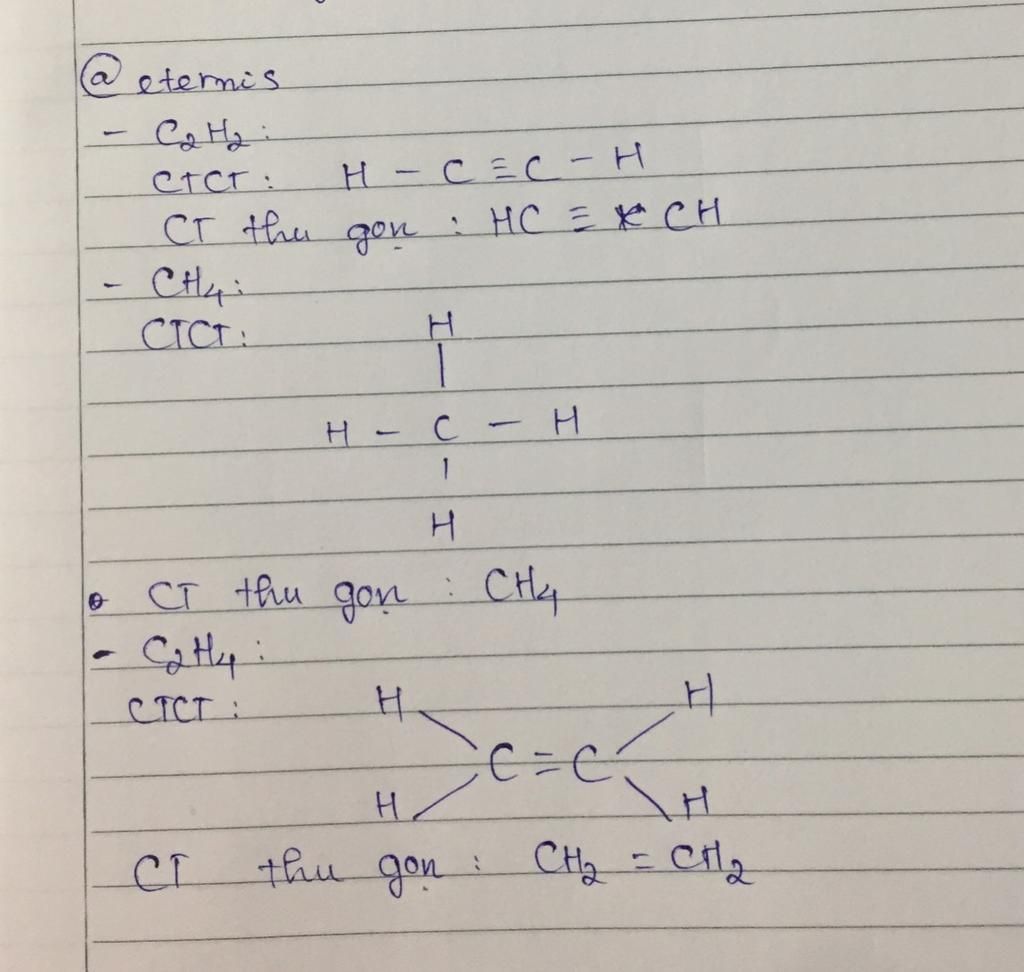 @ eternis
- C₂H₂:
CTCT: H - C ≡ C - H
CT thu gọn : HC ≡ CH
- CH₄:
CTCT: H
|
H - C - H
|
H
CT thu gọn : CH₄
- C₂H₄:
CTCT: H H
C = C
H H
CT thu gọn : CH₂ = CH₂